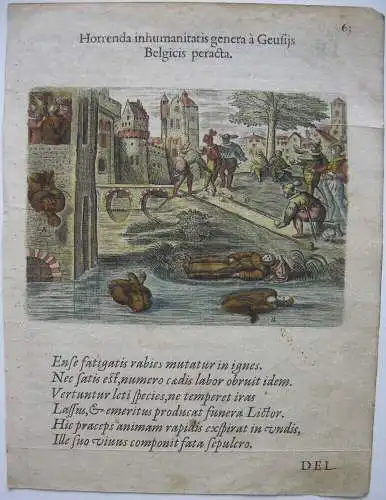 63
Horrenda inhumanitatis genera à Geusijs
Belgicis peracta.
A
B
Ense fatigatis rabies mutatur in ignes.
Nec satis est, numero cædis labor obruit idem.
Vertuntur leti species, ne temperet iras
Lassus, & emeritus producat funera Lictor.
Hic præceps animam rapidis exspirat in vndis,
Ille suo viuus componit fata sepulcro.
DEL.